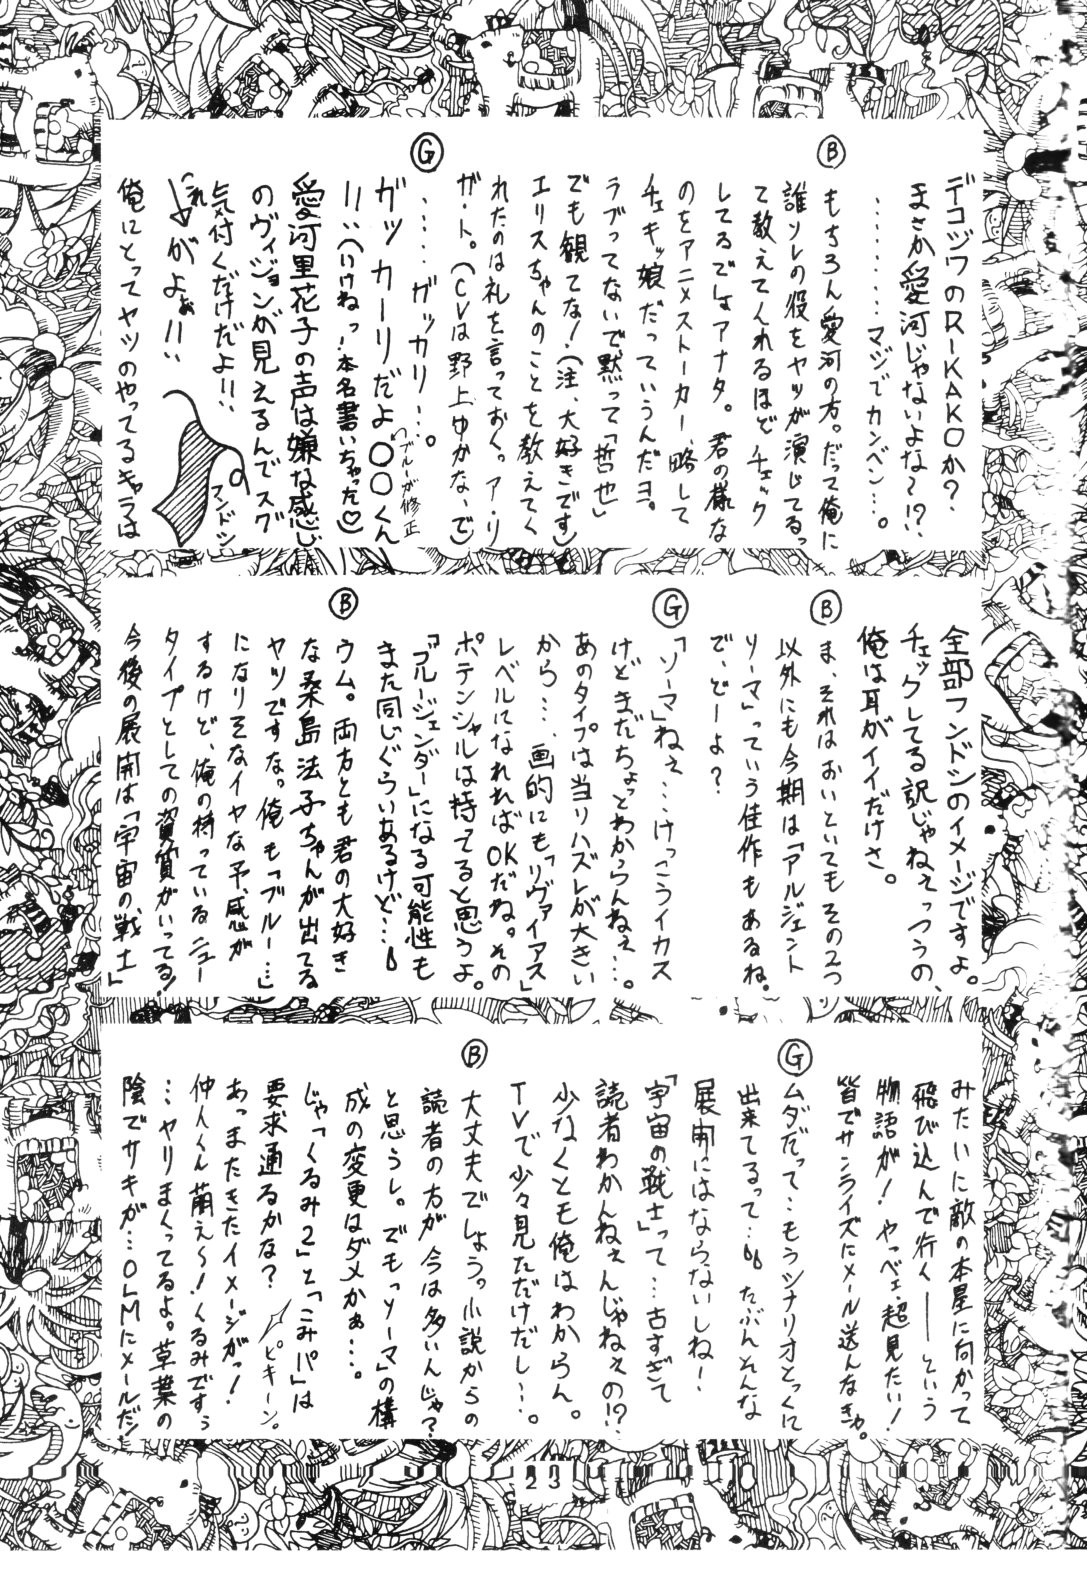 デコジワのRIKAKOか？
まさか愛河じゃないよな〜!?
………マジでカンベン…。
Ⓑ
もちろん愛河の方。だって俺に
誰ソレの役をヤツが演じてるっ
て教えてくれるほどチェック
してるでしょアナタ。君の様な
のをアニメストーカー、略して
チェキッ娘だっていうんだヨ。
ラブってないで黙って「哲也」
でも観てな！（注、大好きです）
エリスちゃんのことを教えてく
れたのは礼を言っておく。ア・リ
ガ・ト。（CVは野上ゆかな、で）
Ⓖ
……ガッカリ…。
ガッカーリだよ○○くん
ブルーが修正
!!（いけねっ！本名書いちゃった♡）
愛河里花子の声は嫌な感じ
のヴィジョンが見えるんでスグ
気付くだけだよ!!
これ
↓がよぉ!!
フンドシ
俺にとってヤツのやってるキャラは
全部フンドシのイメージですよ。
チェックしてる訳じゃねぇっつうの、
俺は耳がイイだけさ。
Ⓑ
ま、それはおいといてもその2つ
以外にも今期は「アルジェント
ソーマ」っていう佳作もあるね。
で、どーよ？
Ⓖ
「ソーマ」ねぇ…けっこうイカス
けどまだちょっとわかんねぇ…。
あのタイプは当りハズレが大きい
から…画的にも「リヴァイアス」
レベルになれればOKだね。その
ポテンシャルは持ってると思うよ。
「ブルージェンダー」になる可能性も
また同じぐらいあるけど…
Ⓑ
ウム。両方とも君の大好き
な桑島法子ちゃんが出てる
ヤツですな。俺も「ブルー…」
になりそなイヤな予感が
するけど、俺の持っているニュー
タイプとしての資質がいってる！
今後の展開は「宇宙の戦士」
みたいに敵の本星に向かって
飛び込んで行く――という
物語が！やっべェ、超見たい！
皆でサンライズにメール送んなきゃ。
Ⓖ
ムダだって…もうシナリオとっくに
出来てるって…たぶんそんな
展開にはならないしねー
「宇宙の戦士」って…古すぎて
読者わかんねぇんじゃねぇの!?
少なくとも俺はわからん。
TVで少々見ただけだし…。
Ⓑ
大丈夫でしょう。小説からの
読者の方が今は多いんじゃ？
と思うし。でもっソーマ」の構
成の変更はダメかぁ…。
じゃ「くるみ2」と「こみパ」は
要求通るかな？
ピキーン。
あっまたきたイメージがっ！
仲人くん萌え〜！くるみですぅ
…ヤリまくってるよ。草葉の
陰でサキが…OLMにメールだッ！
23